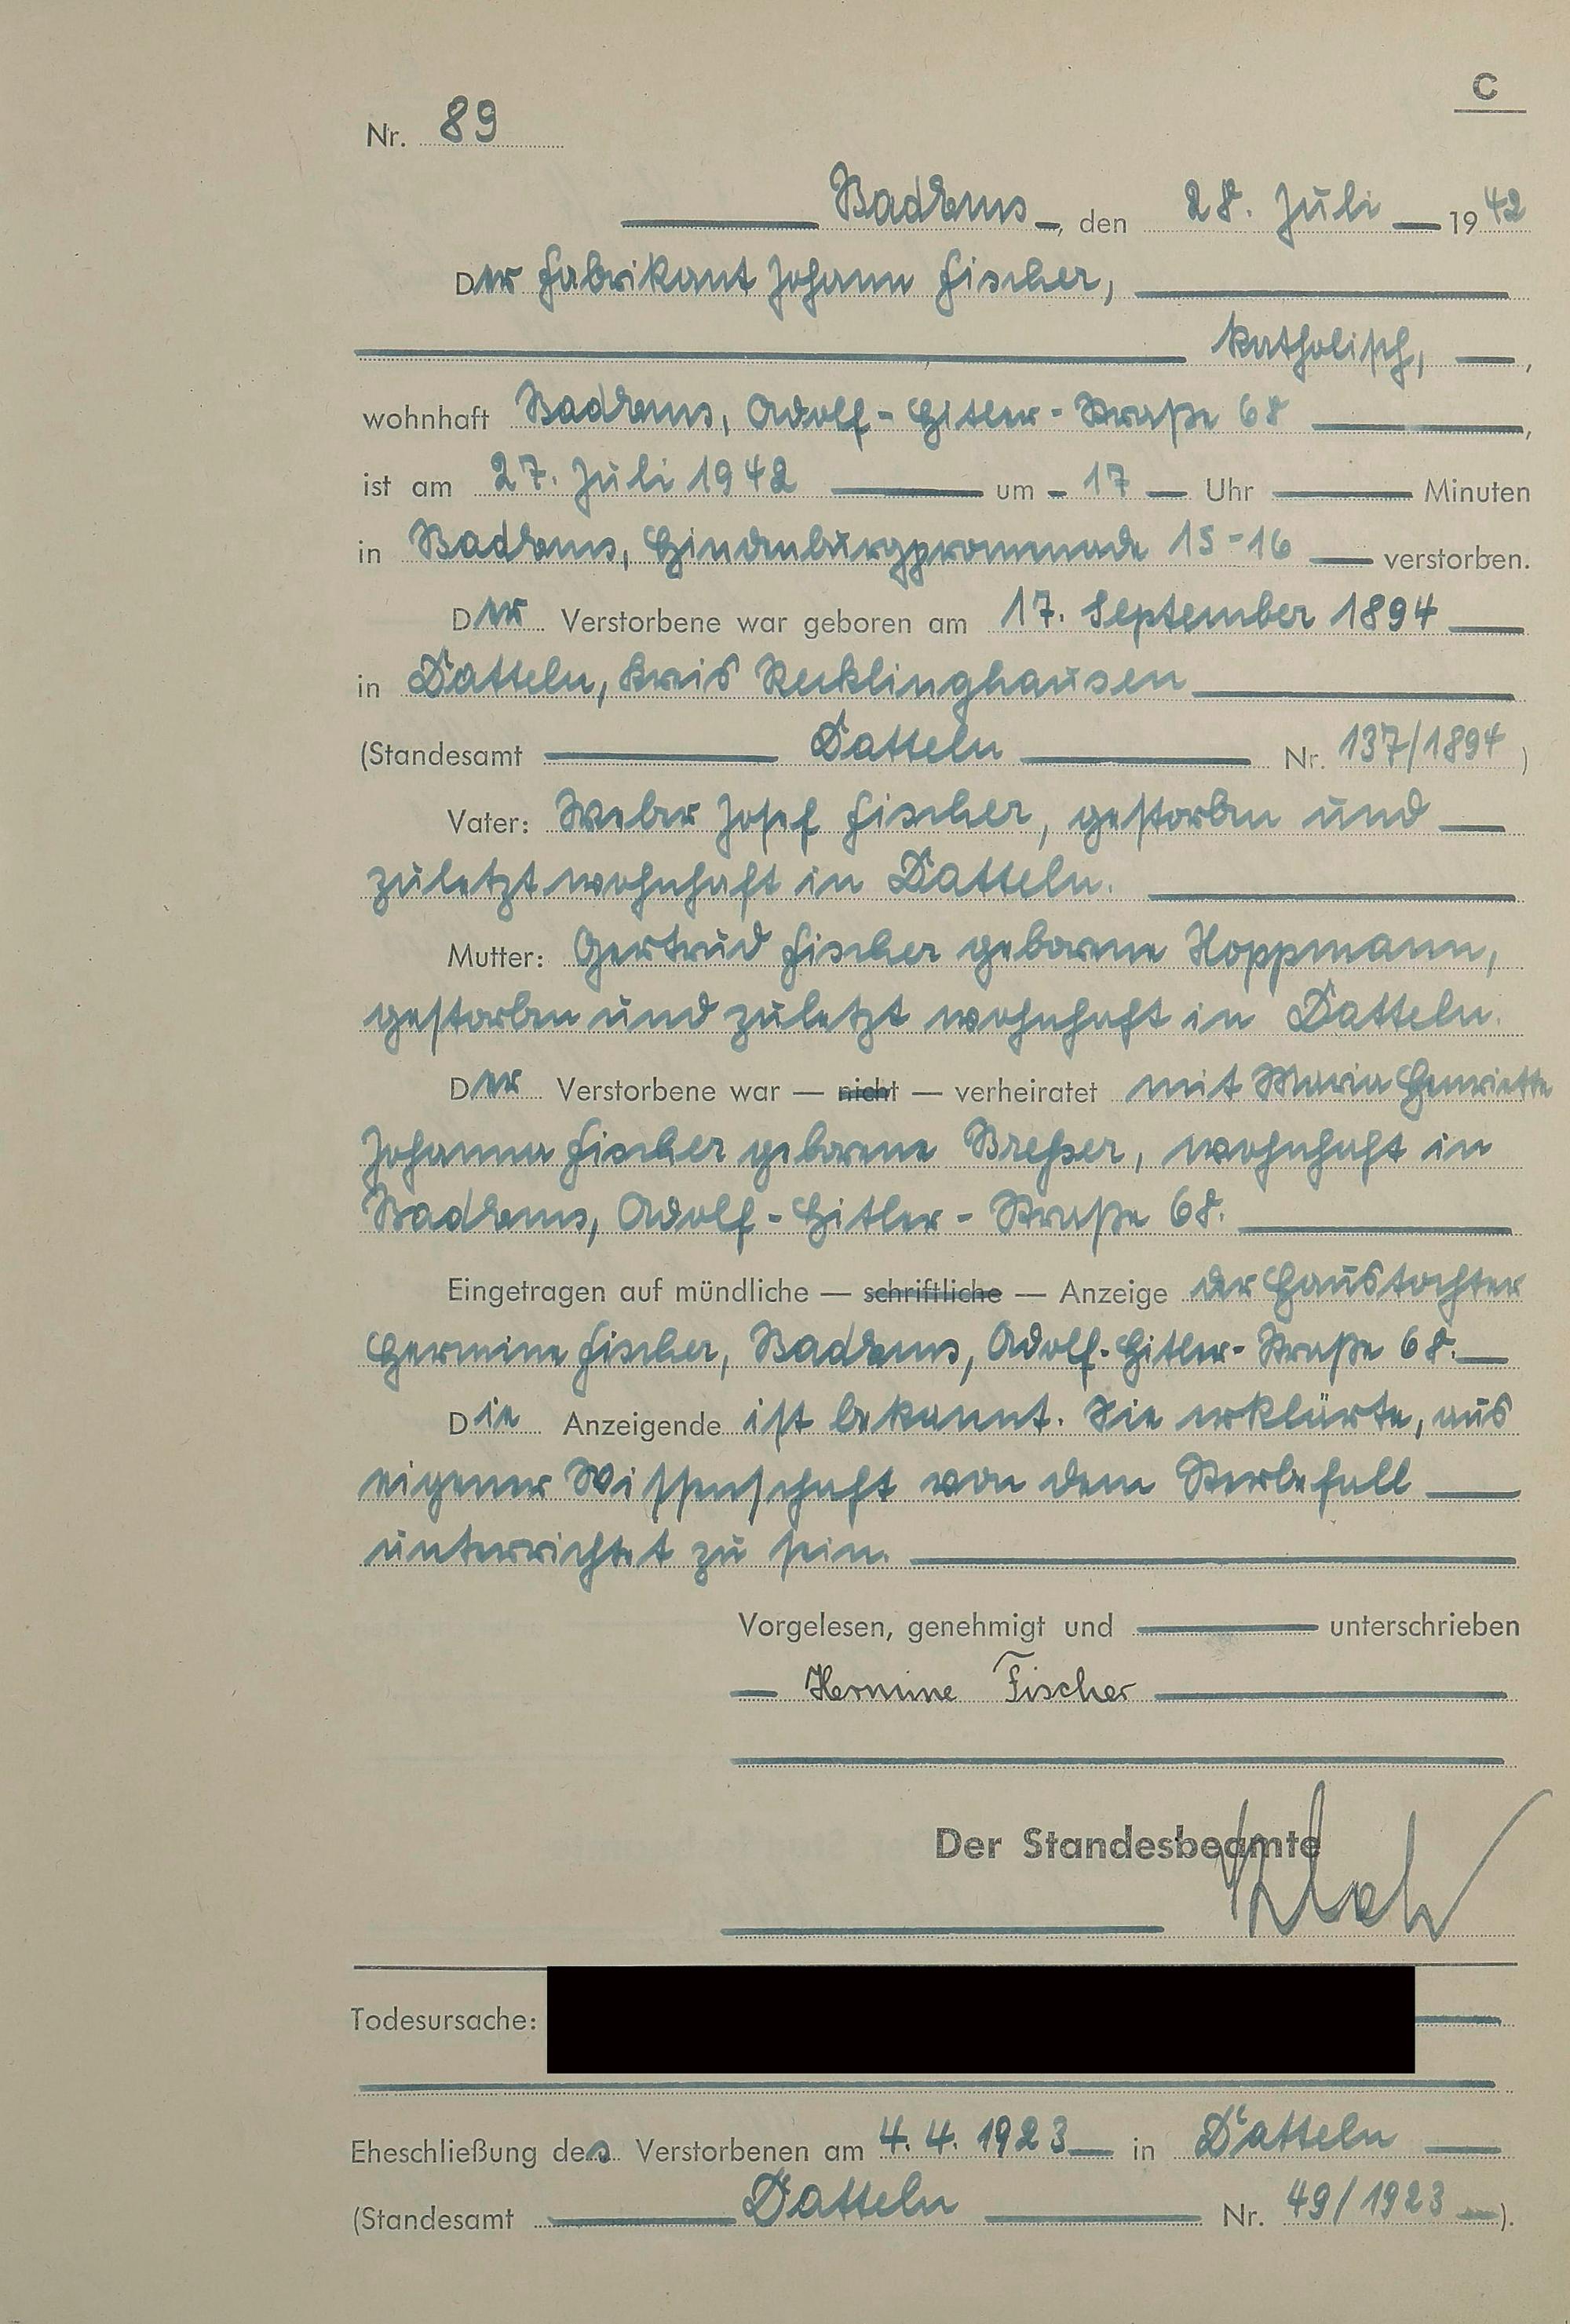 C
Nr. 89
Bad Ems, den 28. Juli 1942
Der Fabrikant Johann Fischer,
katholisch,
wohnhaft Bad Ems, Adolf-Hitler-Straße 68,
ist am 27. Juli 1942 um 17 Uhr Minuten
in Bad Ems, Hindenburgpromenade 15-16 verstorben.
Der Verstorbene war geboren am 17. September 1894
in Datteln, Kreis Recklinghausen
(Standesamt Datteln Nr. 137/1894)
Vater: Weber Josef Fischer, gestorben und
zuletzt wohnhaft in Datteln.
Mutter: Gertrud Fischer geborene Hoppmann,
gestorben und zuletzt wohnhaft in Datteln.
Der Verstorbene war — nicht — verheiratet mit Maria Henriette
Johanna Fischer geborene Breßer, wohnhaft in
Bad Ems, Adolf-Hitler-Straße 68.
Eingetragen auf mündliche — schriftliche — Anzeige der Haustochter
Hermine Fischer, Bad Ems, Adolf-Hitler-Straße 68.
Die Anzeigende ist bekannt. Sie erklärte, aus
eigener Wissenschaft von dem Sterbefall
unterrichtet zu sein.
Vorgelesen, genehmigt und unterschrieben
Hermine Fischer
Der Standesbeamte
Todesursache:
Eheschließung des Verstorbenen am 4.4.1923 in Datteln
(Standesamt Datteln Nr. 49/1923).